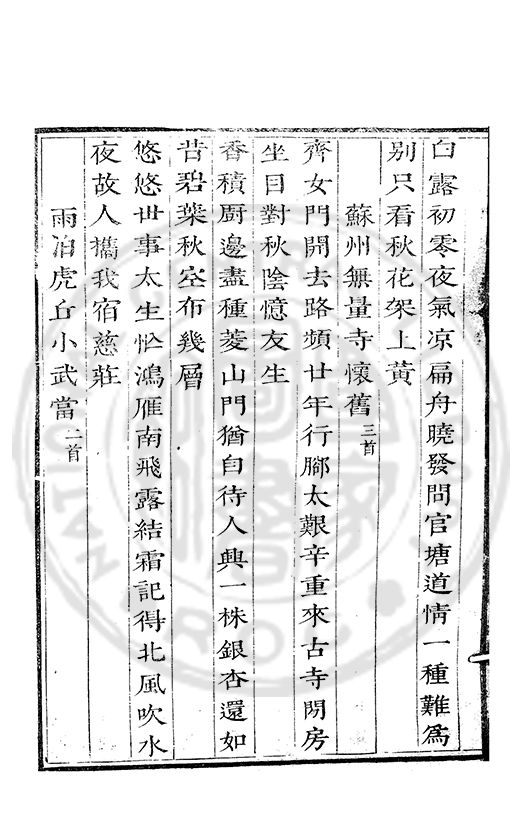 白露初零夜氣凉扁舟曉發問官塘道情一種難爲
别只看秋花架上黄
蘇州無量寺懷舊三首
齊女門開去路頻廿年行腳太艱辛重來古寺閉房
坐目對秋陰憶友生
香積厨邊盡種菱山門猶自待人興一株銀杏還如
昔碧葉秋空布幾層
悠悠世事太生忙鴻雁南飛露結霜記得北風吹水
夜故人攜我宿慈莊
雨泊虎丘小武當二首